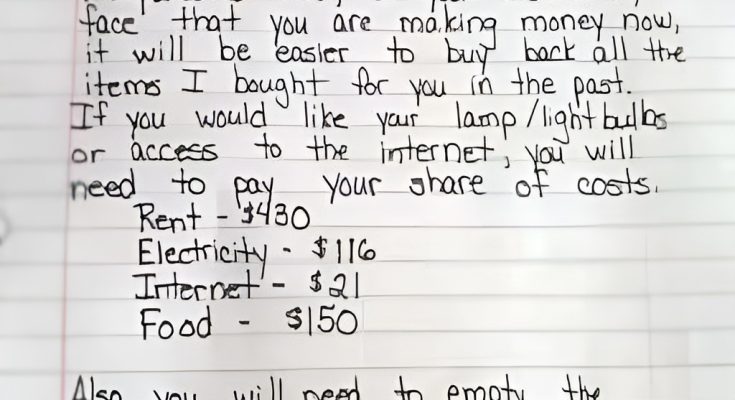 face that you are making money now,
it will be easier to buy back all the
items I bought for you in the past.
If you would like your lamp/lightbulbs
or access to the internet, you will
need to pay your share of costs.
Rent - $430
Electricity - $116
Internet - $21
Food - $150
Also you will need to empty the